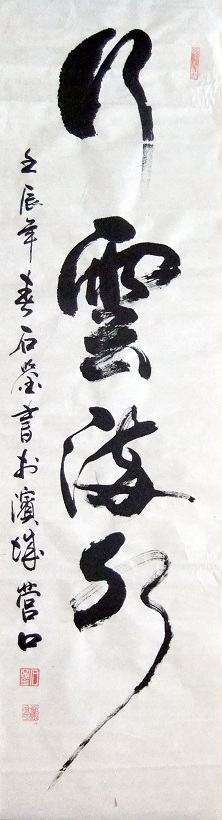 行雲流水
壬辰年春石瑩書於濱城营口